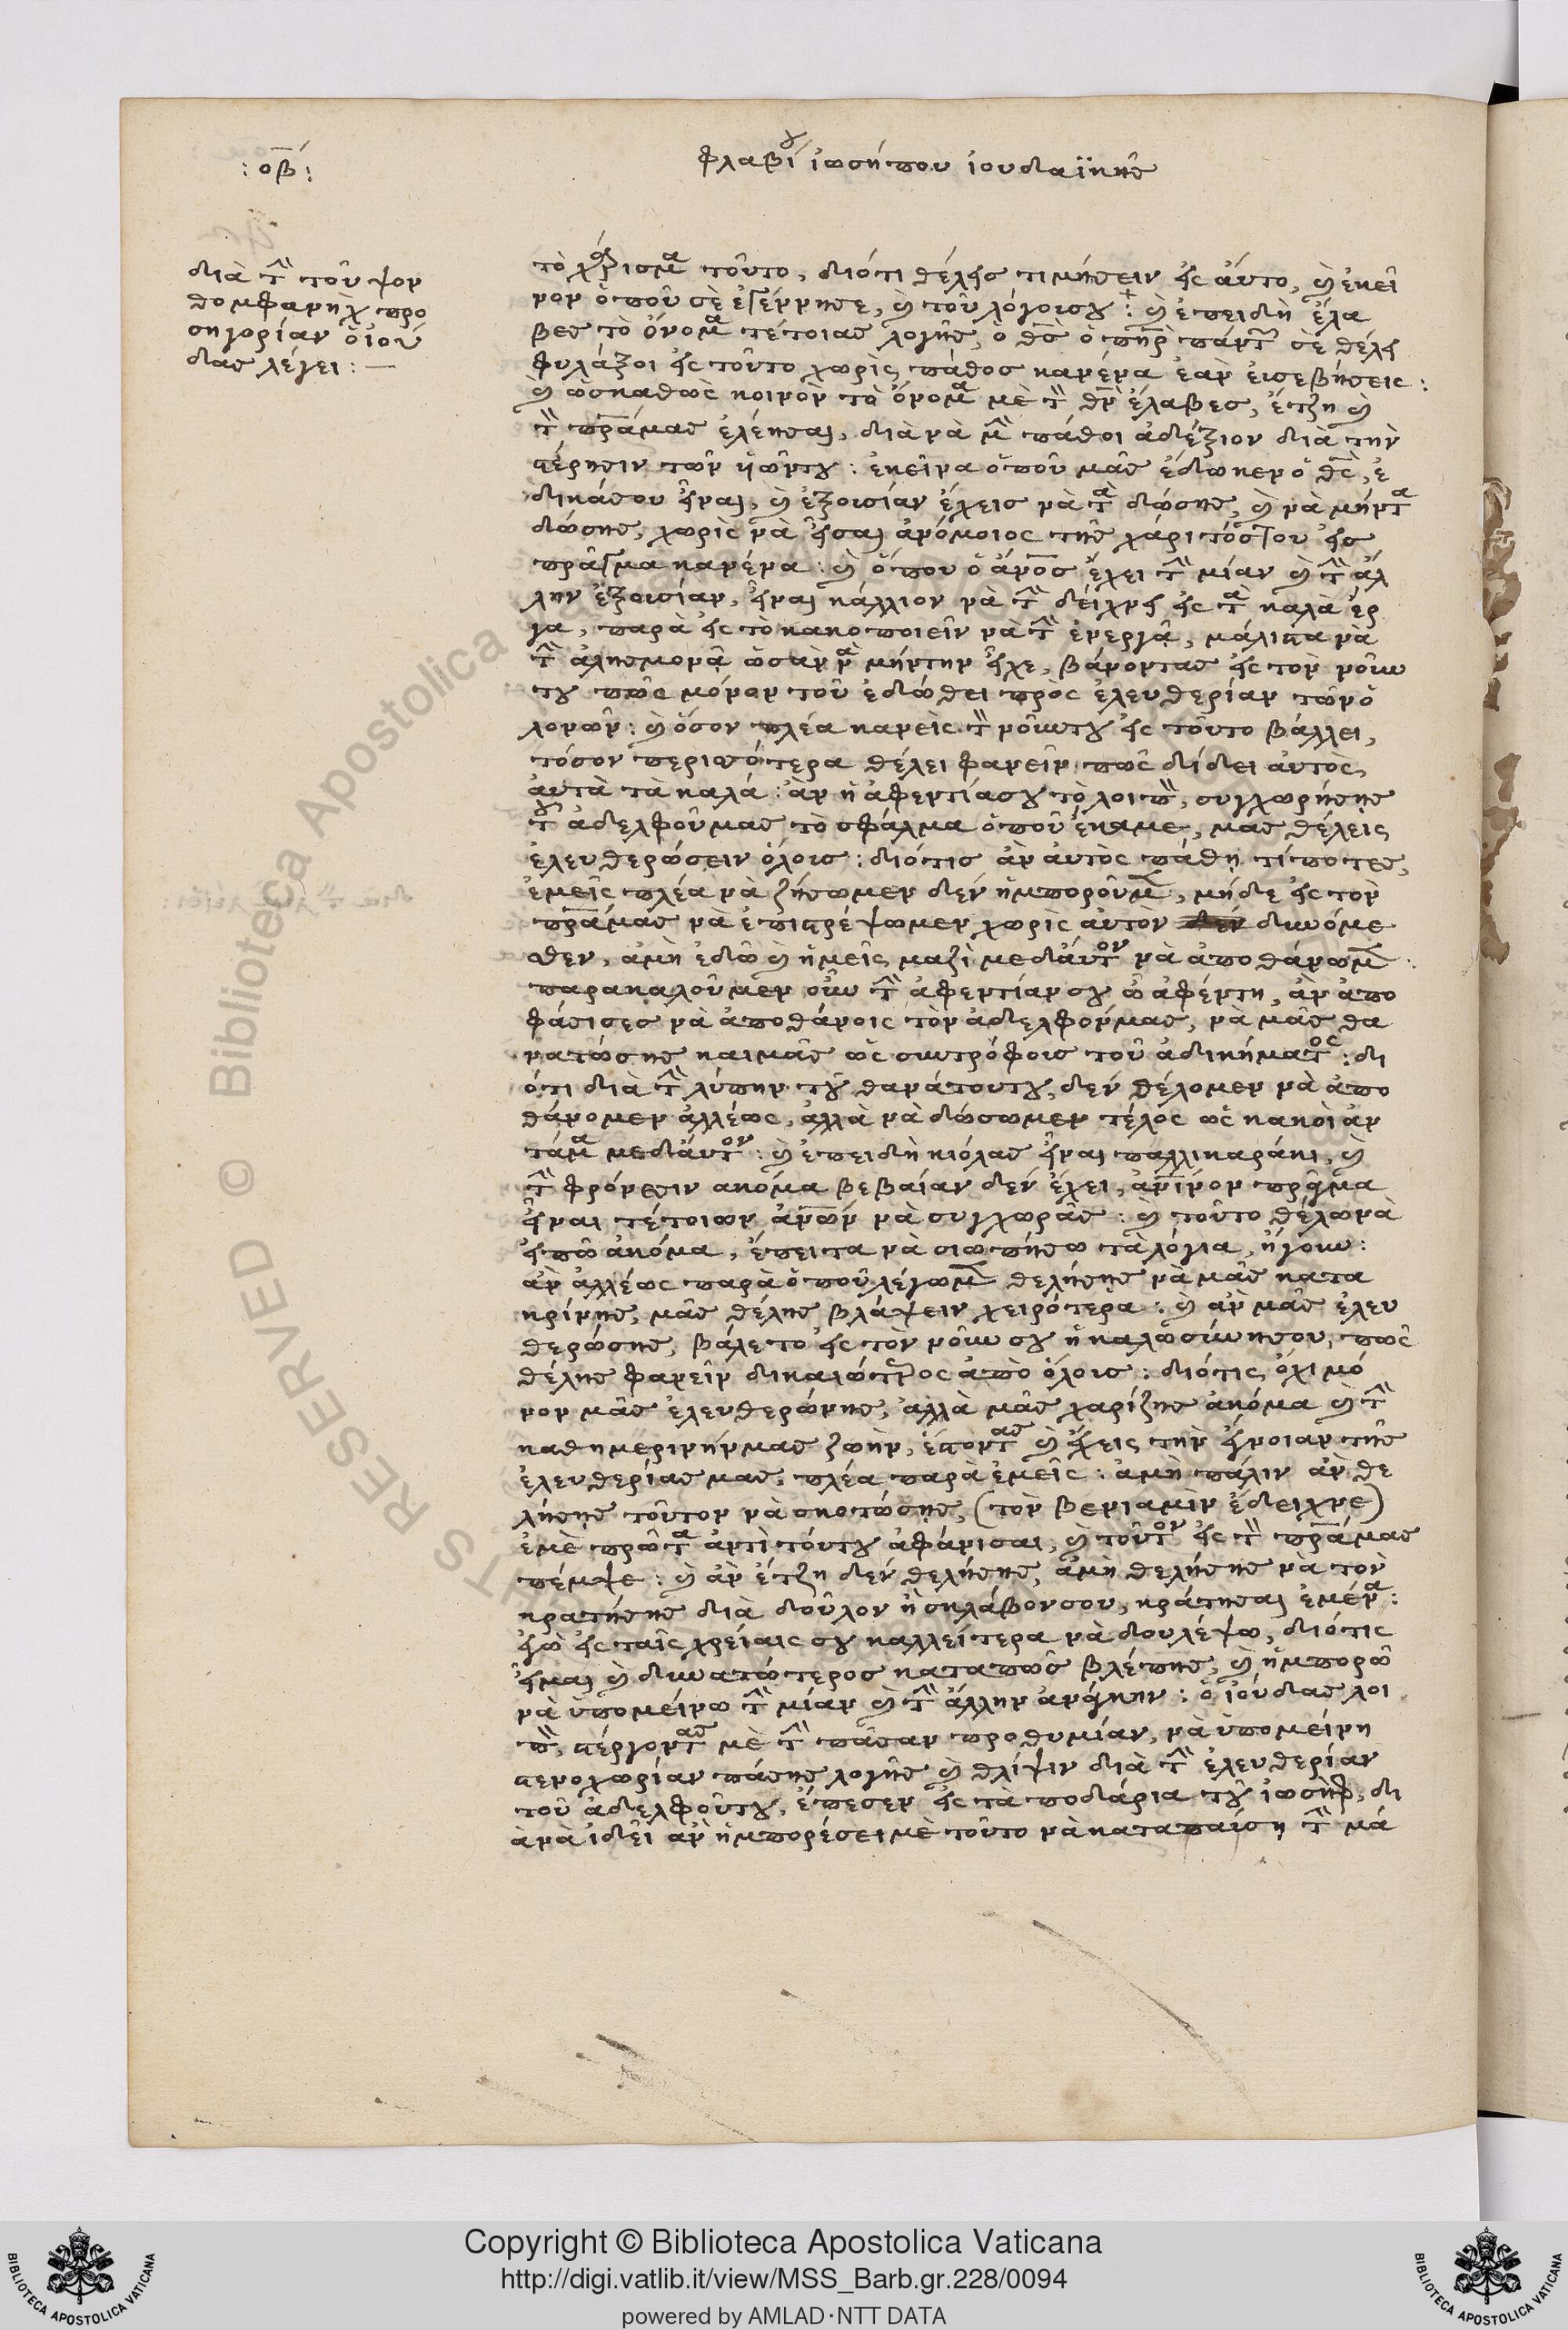 : οβ :
φλαβίου ἰωσήπου ἰουδαϊκῆς
διὰ τὴν τοῦ ψον
θομφανὴχ προ
σηγορίαν ὁ ἰού
δας λέγει : —
τὸ χάρισμα τοῦτο, διότι θέλεις τιμήσειν εἰς αὐτο, καὶ ἐκεῖ
νον ὁποῦ σὲ ἐγέννησε, καὶ τοῦ λόγοισου + : καὶ ἐπειδὴ ἔλα
βες τὸ ὄνομα τέτοιας λογῆς, ὁ θς ὁ πηρ πάντων σὲ θέλει
φυλάξοι εἰς τοῦτο χωρὶς πάθος κανένα ἐὰν εἰσεβήσεις :
καὶ ὡσκαθὼς κοινὸν τὸ ὄνομα μὲ τὸν θν ἔλαβες, ἔτζη καὶ
τὸν πραμας ἐλέησαι, διὰ νὰ μὴν πάθοι ἀδέξιον διὰ τὴν
στέρησιν τῶν ὑῶντου : ἐκεῖνα ὁποῦ μᾶς ἔδωκεν ὁ θς, ἐ
δικάσου εἶναι, καὶ ἐξουσίαν ἔχεις νὰ τὰ δώσης, καὶ νὰ μήντα
δώσης, χωρὶς νὰ εἶσαι ἀνόμοιος τῆς χάριτόςτου εἰς
πρᾶγμα κανένα : καὶ ὅπου ὁ ἄνος ἔχει τὴν μίαν καὶ τὴν ἄλ
λην ἐξουσίαν, εἶναι κάλλιον νὰ τὴν δείχνει εἰς τὰ καλὰ ἔρ
γα, παρὰ εἰς τὸ κακοποιεῖν νὰ τὴν ἐνεργᾶ, μάλιστα νὰ
τὴν ἀλησμονᾶ ὡσὰν νὰ μήντην εἶχε, βάνοντας εἰς τὸν νοῦν
του πῶς μόνον τοῦ ἐδώθει πρὸς ἐλευθερίαν τῶν ὁ
λονῶν : καὶ ὅσον πλέα κανεὶς τὸν νοῦντου εἰς τοῦτο βάλλει,
τόσον περισσότερα θέλει φανεῖν πῶς δίδει αὐτος
αὐτὰ τὰ καλά : ἂν ἡ ἀφεντίασου τὸ λοιπὸν, συγχωρήσης
τοῦ ἀδελφοῦμας τὸ σφάλμα ὁποῦ ἔκαμε, μας θέλεις
ἐλευθερώσειν ὅλοις : διότις ἂν αὐτὸς πάθη τίποτες,
ἐμεῖς πλέα νὰ ζήσωμεν δὲν ἡμποροῦμεν, μήδε εἰς τὸν
πραμας νὰ ἐπιστρέψωμεν χωρὶς αὐτὸν δυνόμε
θεν, ἀμὴ ἐδῶ καὶ ἡμεῖς μαζὶ μεδαύτον νὰ ἀποθάνωμεν :
παρακαλοῦμεν οὖν τὴν ἀφεντίαν σου ὦ ἀφέντη, ἂν ἀπο
φάσισες νὰ ἀποθάνοις τὸν ἀδελφόνμας, νὰ μᾶς θα
νατώσης καιμᾶς ὡς συντρόφοις τοῦ ἀδικήματος : δι
ότι διὰ τὴν λύπην τοῦ θανάτουτου, δὲν θέλομεν νὰ ἀπο
θάνομεν ἀλλέως, ἀλλὰ νὰ δώσωμεν τέλος ὡς κακοὶ ἀν
τάμα μεδαύτον : καὶ ἐπειδὴ κιόλας εἶναι παλλικαράκι, καὶ
τὴν φρόνεσιν ακόμα βεβαίαν δὲν ἔχει, ἀνινον πρᾶγμα
εἶναι τέτοιων ἀνων νὰ συγχωρᾶς : καὶ τοῦτο θέλω νὰ
εἰπῶ ἀκόμα, ἔπειτα νὰ σιωπήσω τὰ λόγια, ἤγουν :
ἂν ἀλλέως παρὰ ὁποῦ λέγωμεν θελήσης νὰ μᾶς κατα
κρίνης, μᾶς θέλης βλάψειν χειρότερα : καὶ ἂν μᾶς ἐλευ
θερώσης, βάλετο εἰς τὸν νοῦν σου ἡ καλωσύνησου, πῶς
θέλης φανεῖν δικαιώτερος ἀπὸ ὅλοις : διότις ὄχι μό
νον μᾶς ἐλευθερώνης, ἀλλὰ μᾶς χαρίζης ἀκόμα καὶ τὴν
καθημερινήνμας ζωὴν, ἔστοντας καὶ ἔχεις τὴν ἔννοιαν τῆς
ἐλευθερίας μας, πλέα παρὰ ἐμεῖς : ἀμὴ πάλιν ἂν θε
λήσης τοῦτον νὰ σκοτώσης, (τὸν βενιαμὶν ἔδειχνε)
ἐμὲ πρῶτα ἀντὶ τούτου ἀφάνισαι, καὶ τοῦτον εἰς τὸν πραμας
πέμψε : καὶ ἂν ἔτζη δὲν θελήσης, ἀμὴ θελήσης νὰ τὸν
κρατήσης διὰ δοῦλον ἢ σκλάβονσου, κράτησαι ἐμένα :
ἐγὼ εἰς ταῖς χρείαις σου καλλείτερα νὰ δουλέψω, διότις
εἶμαι καὶ δυνατώτερος καταπῶς βλέπης, καὶ ἡμπορῶ
νὰ ὑπομείνω τὴν μίαν καὶ τὴν ἄλλην ἀνάγκην : ὁ ἰούδας λοι
πὸν, στέργοντας μὲ τὴν πᾶσαν προθυμίαν, νὰ ὑπομείνη
στενοχωρίαν πάσης λογῆς καὶ θλίψιν διὰ τὴν ἐλευθερίαν
τοῦ ἀδελφοῦτου, ἔπεσεν εἰς τὰ ποδάρια τοῦ ἰωσὴφ, δι
ὰ νὰ ἰδεῖ ἂν ἡμπορέσει μὲ τοῦτο νὰ καταπαύση τὴν μά
Copyright © Biblioteca Apostolica Vaticana
http://digi.vatlib.it/view/MSS_Barb.gr.228/0094
powered by AMLAD·NTT DATA